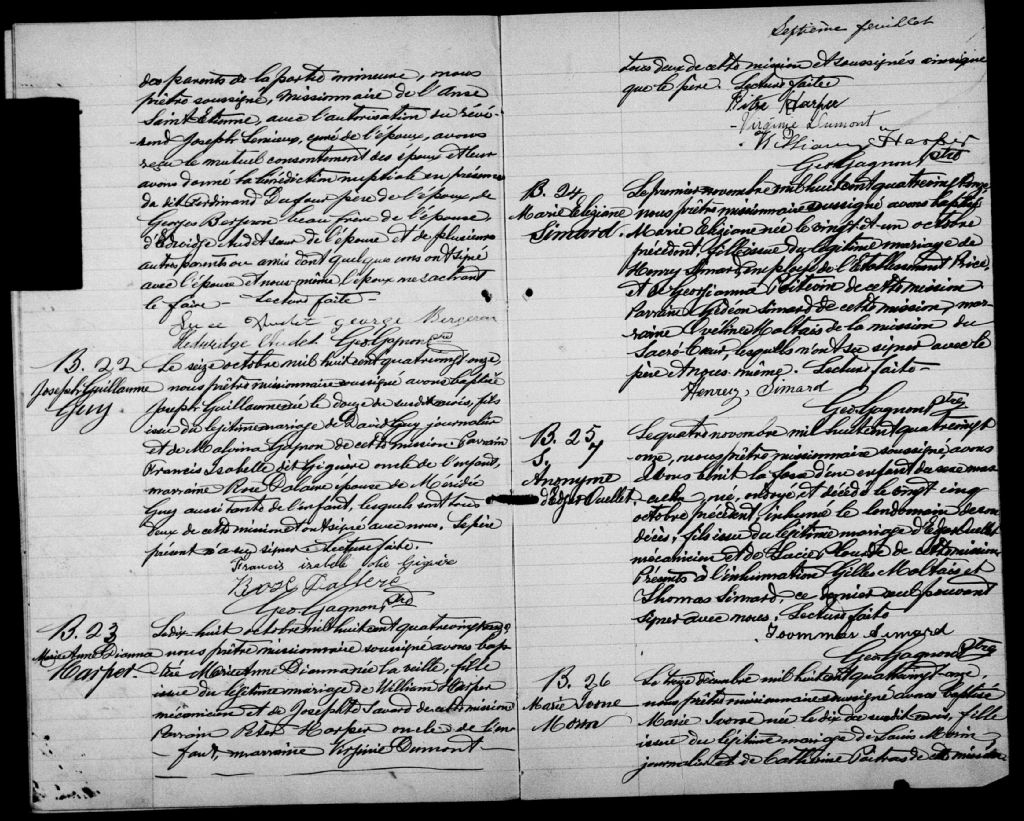 des parents de la partie mineure, nous
prêtre soussigné, missionnaire de l'Anse
Saint-Etienne, avec l'autorisation du révé-
rend Joseph Lemieux, curé de l'époux, avons
reçu le mutuel consentement des époux et leur
avons donné la bénédiction nuptiale en présence
du dit Ferdinand Dufour père de l'époux, de
Georges Bergeron beau frère de l'épouse
d'Edwidge Audet sœur de l'épouse et de plusieurs
autres parents ou amis dont quelques uns ont signé
avec l'épouse et nous-même l'époux ne sachant
le faire - Lecture faite -
Audet george Bergeron
Hedwidge Audet Geo Gagnon ptre
B. 22
Joseph Guillaume
Guy
Le seize octobre mil huit cent quatrevingt onze
nous prêtre missionnaire soussigné avons baptisé
Joseph Guillaume né le douze du susdit mois, fils
issu du légitime mariage de David Guy journalier
et de Malvina Gagnon de cette mission. Parrain
Francis Isabelle dit Giguère oncle de l'enfant,
marraine Rose épouse de
Guy aussi tante de l'enfant, lesquels sont tous
deux de cette mission et ont signé avec nous. Le père
présent n'a su signer. Lecture faite.
Francis
Rose
Geo Gagnon, ptre
B. 23
Marie Anne Dianna
Harper
Le dix-huit octobre mil huit cent quatrevingt onze
nous prêtre missionnaire soussigné avons bap-
tisé Marie Anne Dianna née la veille, fille
issue du légitime mariage de William Harper
mécanicien et de Josephte Savard de cette mission
Parrain Peter Harper oncle de l'en-
fant, marraine Virginie Dumont -
Septième feuillet
tous deux de cette mission et soussignés ainsi
que le père. Lecture faite
Harper
Virginie Dumont
William Harper
Geo Gagnon ptre
B. 24
Marie
Simard.
Le premier novembre mil huit cent quatrevingt onze
nous prêtre missionnaire soussigné avons baptisé
Marie née le vingt et un octobre
précédent, fille issue du légitime mariage de
Henry Simard employé de l'Etablissement Price,
et de Georgianna de cette mission.
Parrain Gédéon Simard de cette mission, mar-
raine Maltais de la mission du
Sacré-Cœur, lesquels n'ont su signer avec le
père et nous-même. Lecture faite -
Henrey Simard
Geo Gagnon ptre
B. 25
S. 7
Anonyme
d'Edgar Ouellet
Le quatre novembre mil huit cent quatrevingt
onze, nous prêtre missionnaire soussigné avons
avons bénit la fosse d'un enfant du sexe mas-
culin né, ondoyé et décédé le vingt cinq
octobre précédent, inhumé le lendemain de son
décès, fils issu du légitime mariage d'Edgar Ouellet
mécanicien et de Plourde de cette mission
Présents à l'inhumation Gilles Maltais et
Thomas Simard, ce dernier seul pouvant
signer avec nous. Lecture faite
Simard
Geo Gagnon ptre
B. 26
Marie Ivonne
Morin
Le treize décembre mil huit cent quatrevingt onze
nous prêtre missionnaire soussigné avons baptisé
Marie Ivonne née le dix du susdit mois, fille
issue du légitime mariage de Louis Morin
journalier et de Catherine de cette mission